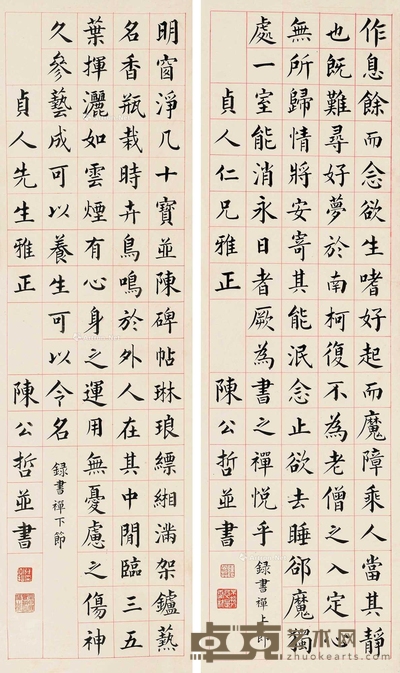 作息餘而念欲生嗜好起而魔障乘人當其靜
也既難尋好夢於南柯復不為老僧之入定心
無所歸情將安寄其能泯念止欲去睡郤魔獨
處一室能消永日者厥為書之禪悅乎 録書禪上節
貞人仁兄雅正 陳公哲並書
明窗淨几十寶並陳碑帖琳琅縹緗滿架鑪爇
名香瓶栽時卉鳥鳴於外人在其中閒臨三五
葉揮灑如雲煙有心身之運用無憂慮之傷神
久參藝成可以養生可以令名 録書禪下節
貞人先生雅正 陳公哲並書
卓克艺术网
zhuokearts.com